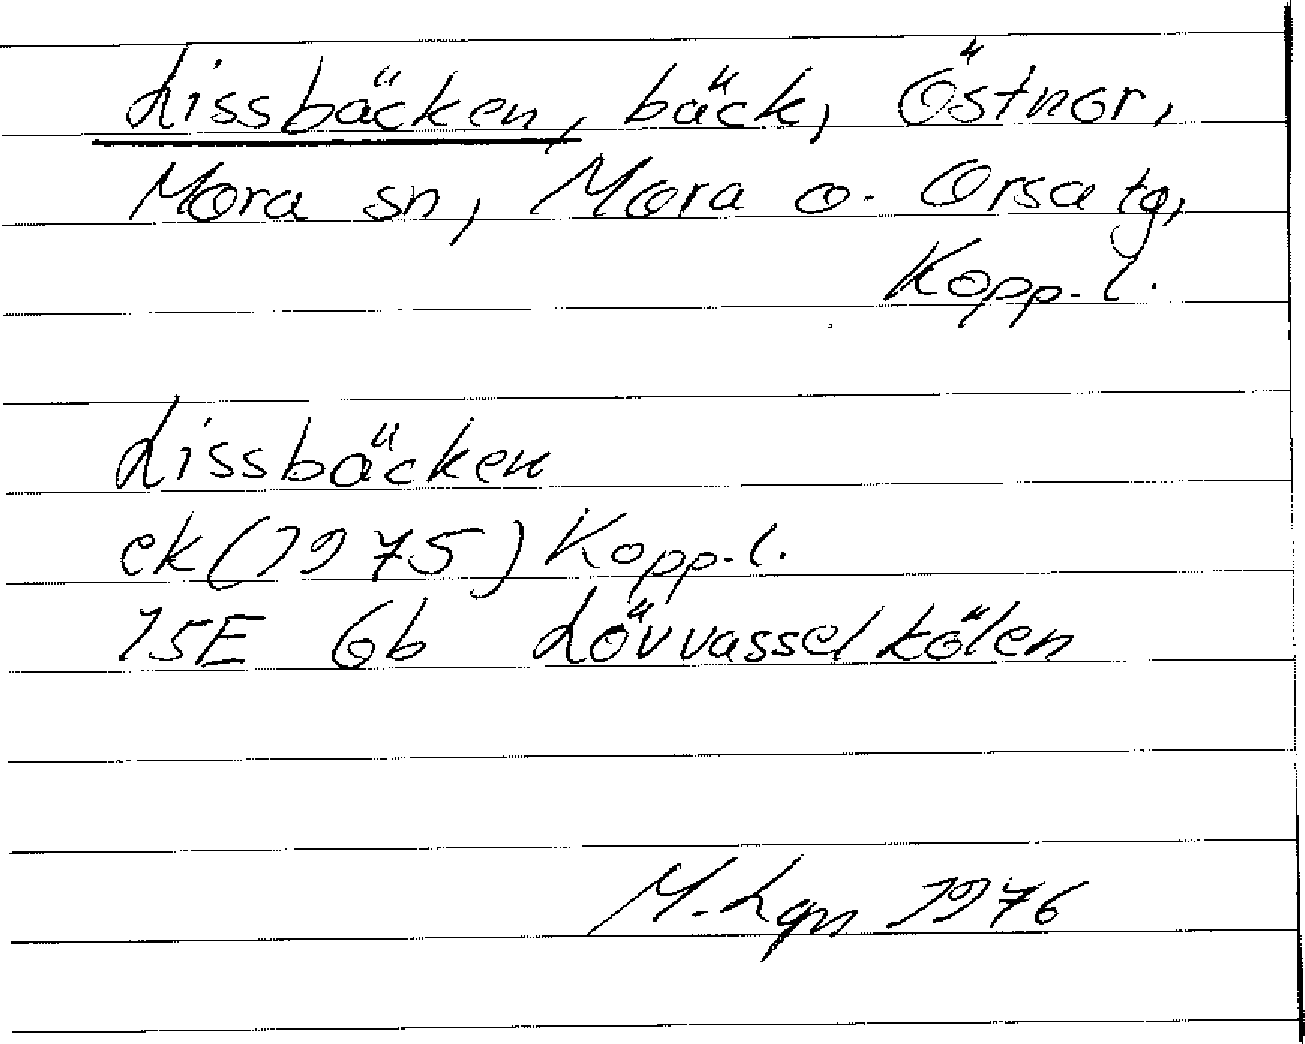 Lissbäcken, bäck, Östnor,
Mora sn, Mora o. Orsa tg,
Kopp. l.
Lissbäcken
ek (1975) Kopp. l.
15E 6b Lövvasselkölen
M. Lgn 1976